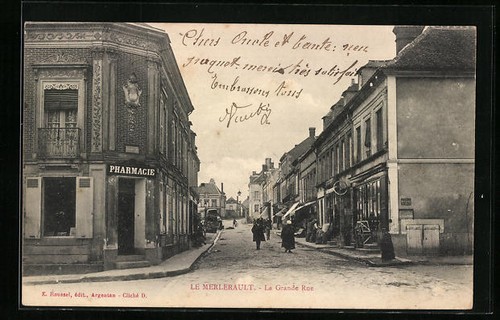 Chers Oncle et Tante : un
paquet - merci très satisfait
Embrassons tous
PHARMACIE
LE MERLERAULT. - La Grande Rue
E. Roussel, édit., Argentan - Cliché D.